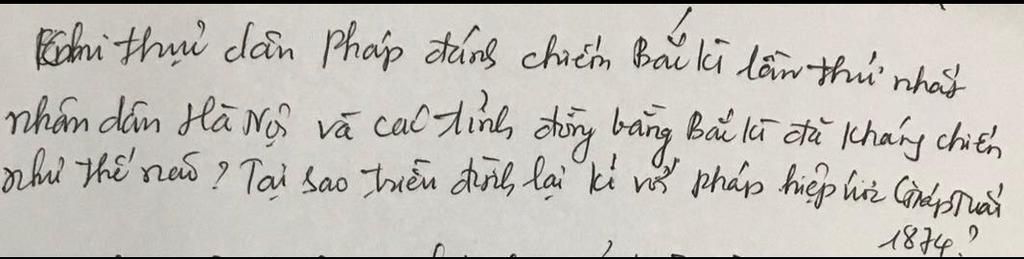 Khi thực dân Pháp đánh chiếm Bắc kì lần thứ nhất
nhân dân Hà Nội và các tỉnh đồng bằng Bắc kì đã kháng chiến
như thế nào? Tại sao triều đình lại kí với pháp hiệp ước Giáp Tuất
1874?